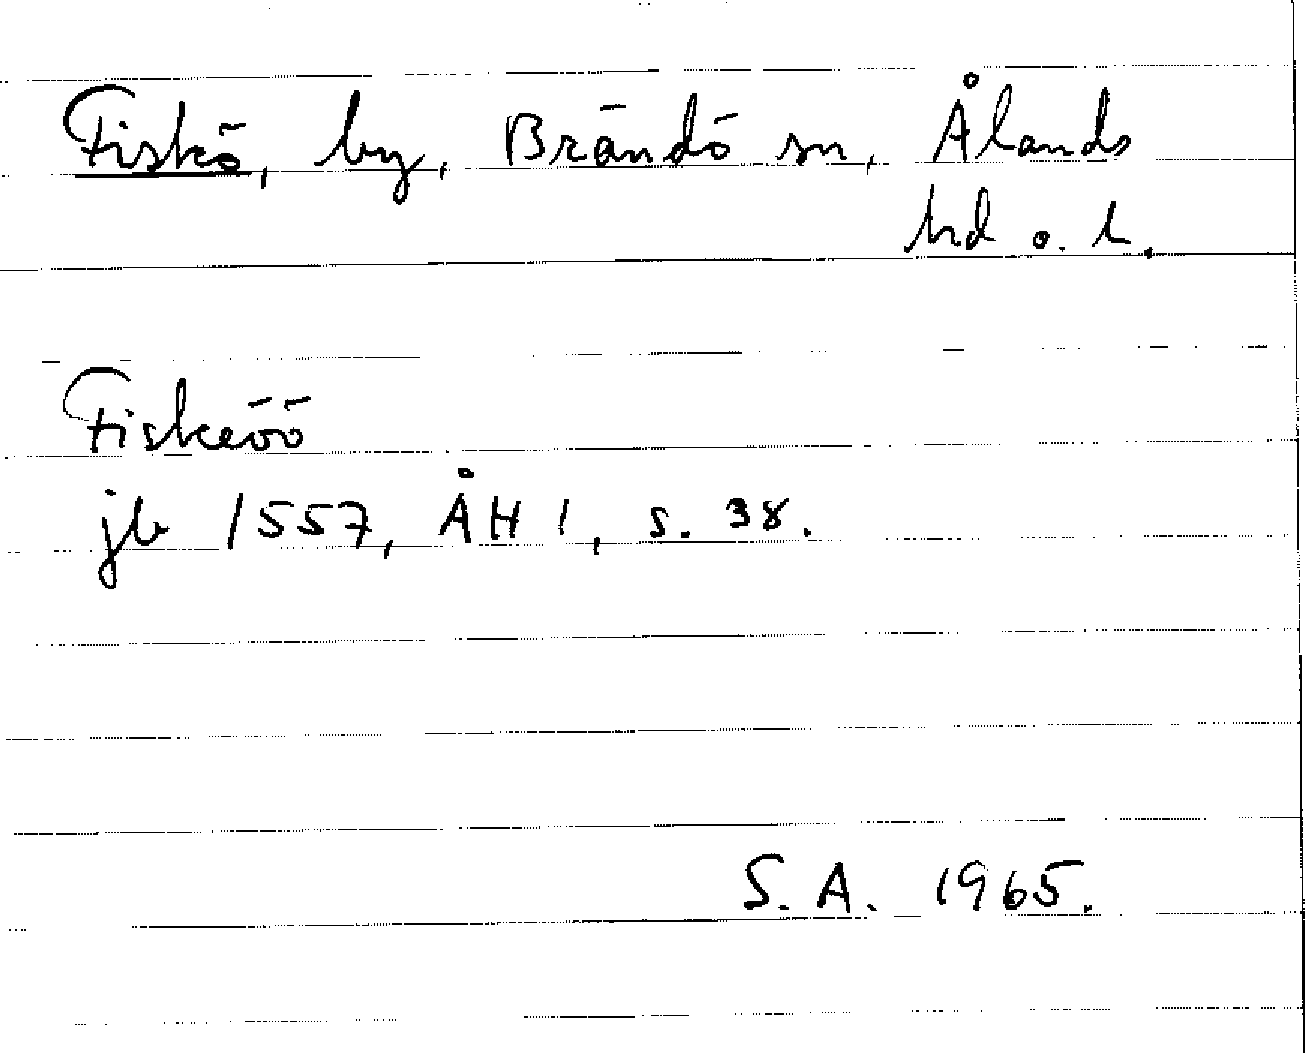 Fiskö, by, Brändö sn, Ålands
hd o. l.
Fiskeöö
jb 1557, ÅH 1, s. 38.
S. A. 1965.